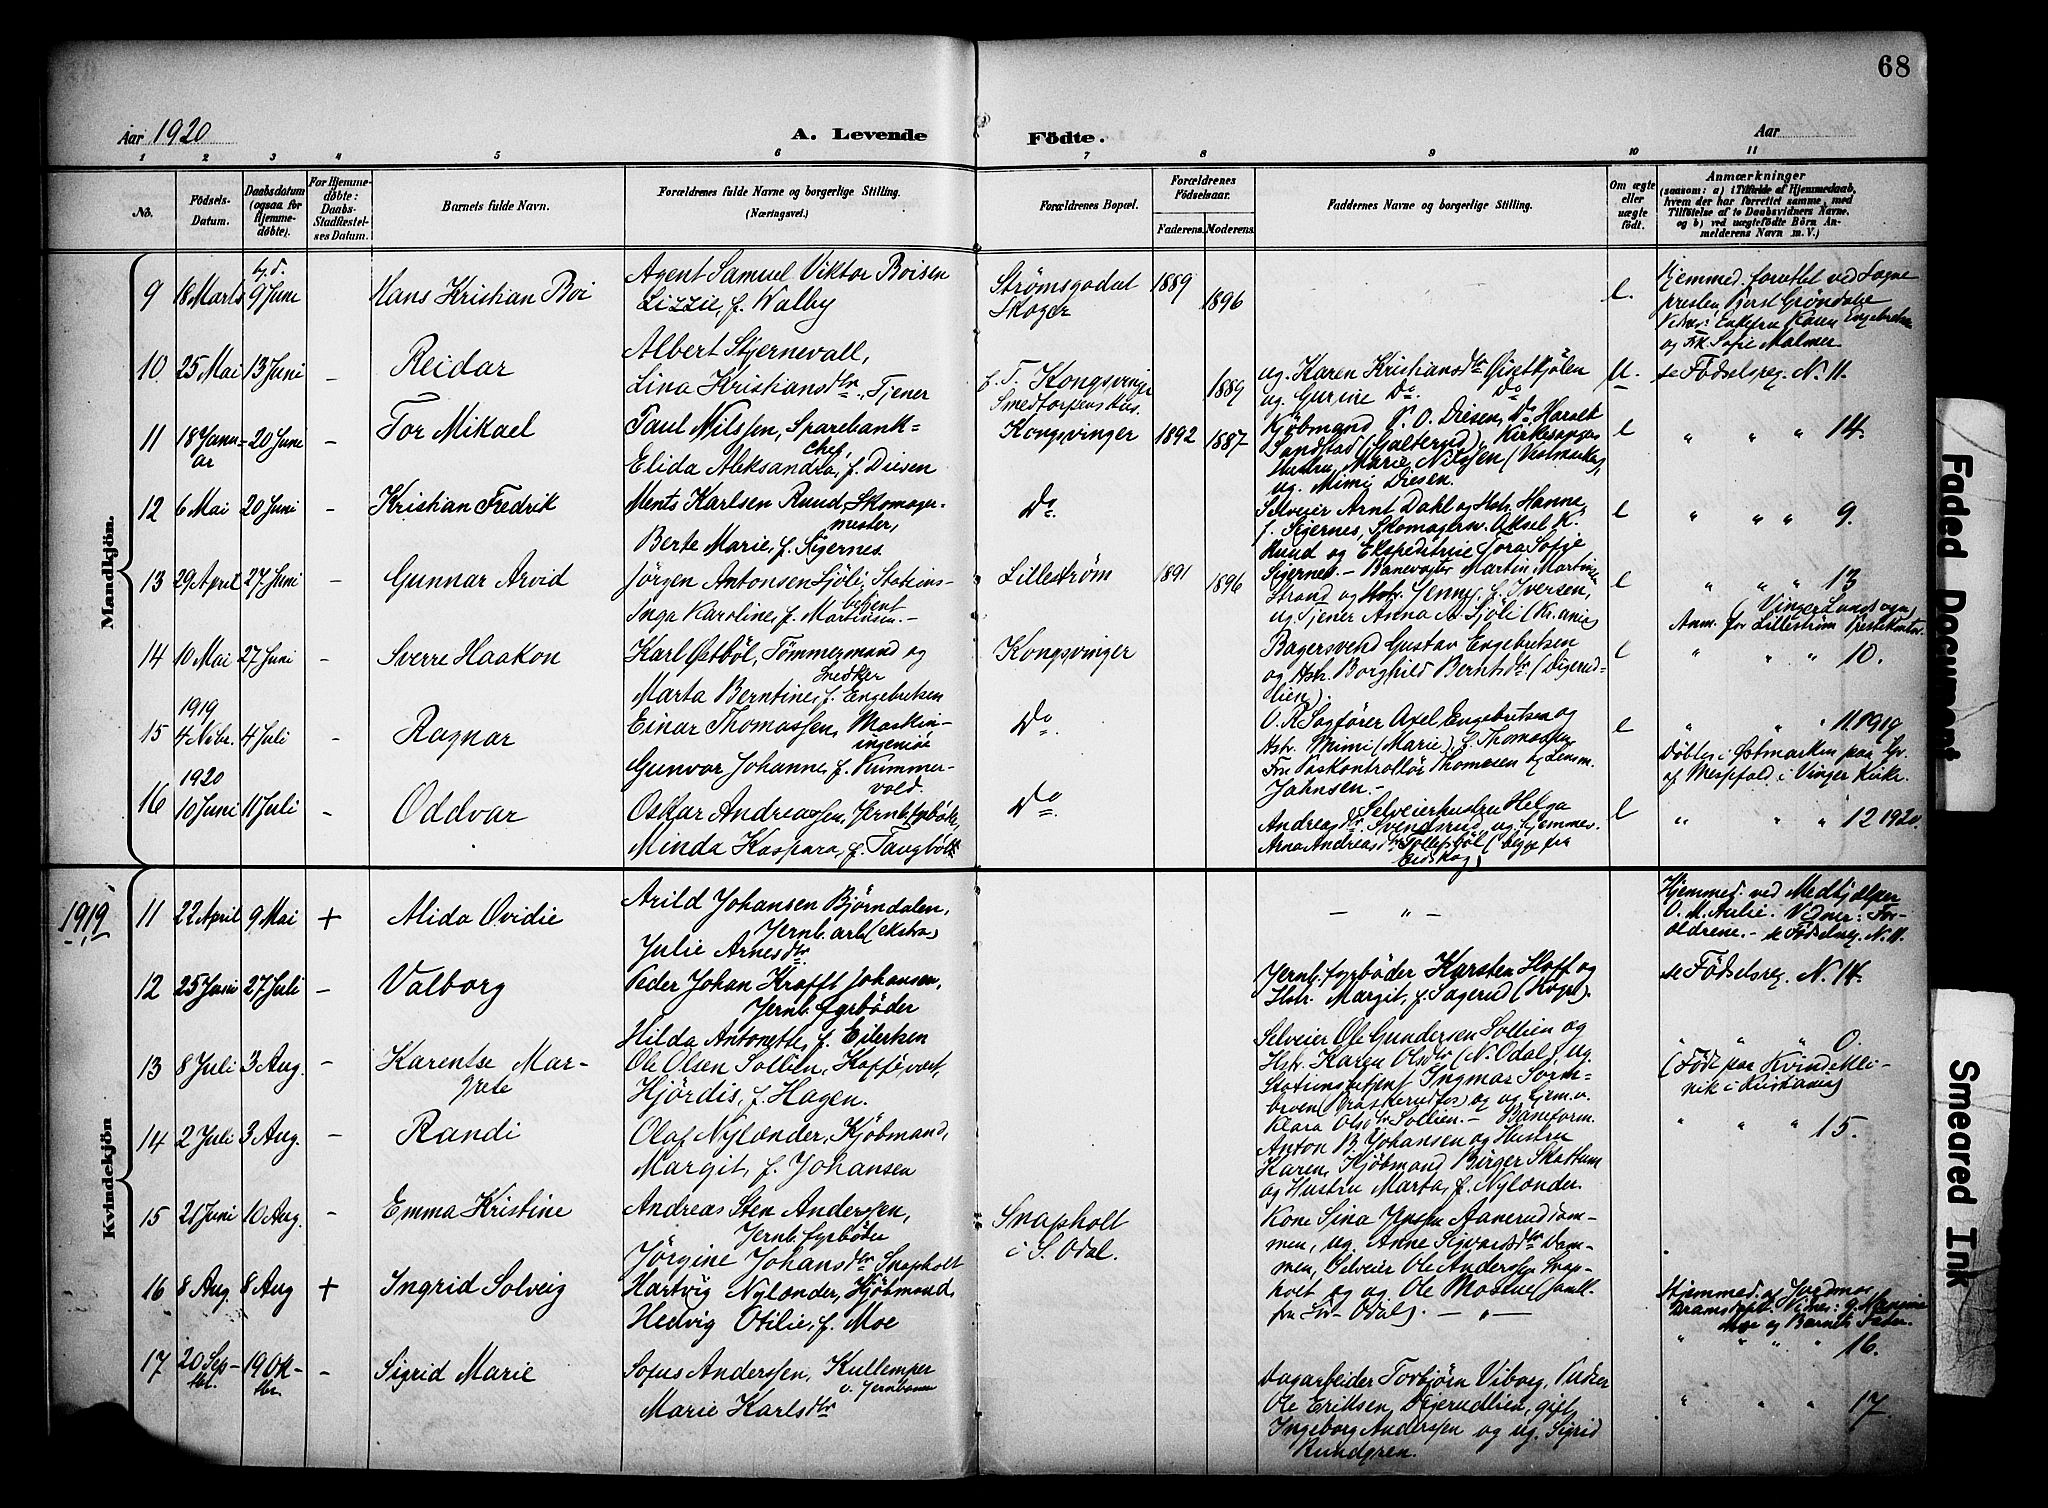 68
Aar 1920
A. Levende Födte.
Aar
1 2 3 4 5 6 7 8 9 10 11
No.
Födsels-
Datum.
Daabsdatum
(ogsaa for
Hjemme-
døbte).
For Hjemme-
døbte:
Daabs-
Stadfæstel-
ses Datum.
Barnets fulde Navn.
Forældrenes fulde Navne og borgerlige Stilling.
(Næringsvei.)
Forældrenes Bopæl.
Forældrenes
Födselsaar.
Faderens. Moderens.
Faddernes Navne og borgerlige Stilling.
Om ægte
eller
uægte
födt.
Anmærkninger
(saasom: a) i Tilfælde af Hjemmedaab,
hvem der har forrettet samme, med
Tilföielse af to Daabsvidners Navne.
og b) ved uægtefödte Börn An-
melderens Navn m. V.)
Mandkjön.
9 18 Marts 9 Juni Hans Kristian Boi
Agent Samuel Viktor Boisen
Lizzie, f. Walby
Strømsgodset
Skoger
1889 1896
e.
Hjemmed. forrettet ved Sogne
presten Grøndahl
Vidner: Enkefru Karen Engebretsen
og Frk. Sofie Malmer
10 25 Mai 13 Juni – Reidar
Albert Stjernevall,
Lina Kristiansdtr., Tjener
f. T. Kongsvinger
1889
ug. Karen Kristiansdtr Øisetkjölen
ug. Gurine Do Do
u.
se Födselsreg. N. 11.
11 18 Janu-
ar
20 Juni – Tor Mikael
Paul Nilssen, Sparebank-
chef,
Elida Aleksandra, f. Diesen
Kongsvinger 1892 1887
Kjøbmand P. O. Diesen, Do Harald
Sandstad (Galterud), Kirkesanger
Hustru Marie Nilssen (Vestmarka),
ug. Mimi Diesen.
e
" " " 14.
12 6 Mai 20 Juni – Kristian Fredrik
Ments Karlsen Ruud, Skomager-
mester,
Berte Marie, f. Sigernes.
Do.
Selveier Arnt Dahl og Hstr. Hanne,
f. Sigernes, Skomagersv. Aksel K.
Ruud og Ekspeditrice Tora Sofie
Sigernes. –
e
" " " 9.
13 29 April 27 Juni – Gunnar Arvid
Jörgen Antonsen Sjöli, Stations-
betjent
Inga Karoline, f. Martinsen. –
Lillestrøm 1891 1896
Banevogter Martin Martinsen
Strand og Hstr. Jenny, f. Iversen,
ug. Tjener Anna A. Sjöli (Kr.ania)
e
" " " 13
(Vinger Landsogn)
Anm. for Lillestrøm Prestekontor.
14 10 Mai 27 Juni – Sverre Haakon
Karl Østböl, Tömmermand og
Snedker
Marta Berntine, f. Engebretsen
Kongsvinger
Bagersvend Gustav Engebretsen
og Hstr. Borghild Berntsdtr (Digerud-
lien).
e
" " " 10.
15 1919
4 Nvbr. 4 Juli – Ragnar
Einar Thomassen, Maskin-
ingeniør
Gunvor Johanne, f. Kummer-
vold.
Do.
O. R. Sagförer Axel Engebretsen og
Hstr. Mimi (Marie), f. Thomassen
Fru Paskontrollör Thomesen og Lensm.
Johnsen. –
e
" " " 11. 1919
Döbtes i Östmarken paa Gr.
af Messefald i Vinger Kirke.
16 1920
10 Juni 11 Juli – Oddvar
Oskar Andreassen, Jernb.fyrböter,
Minda Kaspara, f. Taugböl
Do.
Selveierhustru Helga
Andreasdtr. Svendsrud, ug. hjemmev.
Arna Andreasdtr Tollefsböl (begge fra
Eidskog)
e
" " " 12 1920.
1919
Kvindekjön
11 22 April 9 Mai + Alida Ovidie
Arild Johansen Björndalen,
Jernb. arb. (ekstra)
Julie Arnesdtr
– " –
Hjemmed. ved Medhjælper
O. M. Aulie. Vidner: For-
ældrene. – se Fødselsreg. N. 11.
12 25 Juni 27 Juli – Valborg
Peder Johan Krafft Johansen,
Jernb. fyrböder
Hilda Antonette, f. Eilertsen
Jernb. fyrböder Karsten Hoff og
Hstr. Margit, f. Sagerud (Kogn).
se Födselsreg. N. 14.
13 8 Juli 3 Aug. – Karentse Mar-
grete
Ole Olsen Sollien, Kaffévært,
Hjördis, f. Hagen.
Selveier Ole Gundersen Sollien og
Hstr. Karen Olsdtr (N. Odal), ug.
Stationsbetjent Ingmar Sorm-
broen (Braskerudfos) og ug. hjem.v.
Klara Olsdtr Sollien. –
" " " 0.
(Född paa Kvindekli-
nik i Kristiania)
14 2 Juli 3 Aug. – Randi
Olaf Nylænder, Kjöbmand,
Margit, f. Johansen
Baneform.
Anton B. Johansen og Hustru
Karen, Kjöbmand Birger Skattum
og Hustru Marta, f. Nylænder.
" " " 15.
15 21 Juni 10 Aug. – Emma Kristine
Andreas Sten Andersen,
Jernb. fyrböder
Jörgine Johansdtr Snapholt
Snapholt
i S. Odal.
Kone Sina Aanerud Dam-
men, ug. Anne Sigvardsdtr Dam-
men, Selveier Ole Andersen Snap-
holt og ug. Ole Mostue (saml.
fra Sör-Odal).
16 8 Aug 8 Aug + Ingrid Solveig
Hartvig Nylænder, Kjöbmand,
Hedvig Otilie, f. Moe
– " –
Hjemmed. af Jordmor
Bramstoft. Vidner:
Moe og Barnets Fader.
" " " 16.
17 20 Sep-
tbr.
19 Ok-
tbr.
– Sigrid Marie
Sofus Anderssen, Kullemper
v. Jernbanen
Marie Karlsdtr
Dagarbeider Torbjörn Viborg, Pudser
Ole Eriksen, Digerudlien, gift
Ingeborg Anderssen og ug. Sigrid
Rundgren.
" " " 17.
Faded Document
Smeared Ink